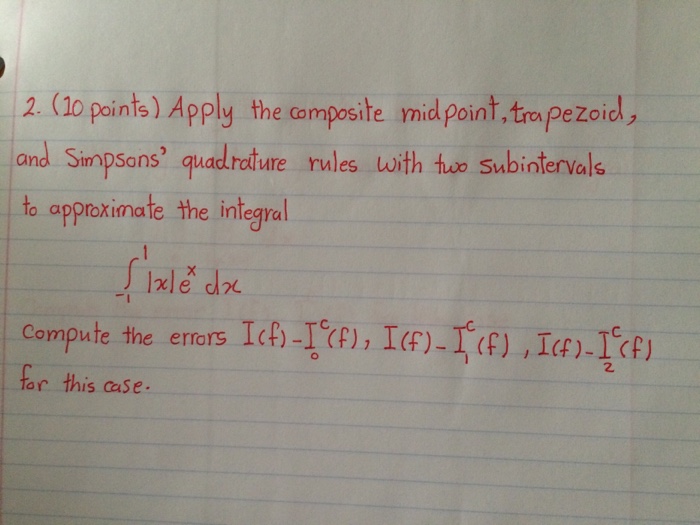 2. (10 points) Apply the composite midpoint, trapezoid,
and Simpsons' quadrature rules with two subintervals
to approximate the integral
∫₋₁¹ |x|eˣ dx
Compute the errors I(f)-I₀ᶜ(f), I(f)-I₁ᶜ(f), I(f)-I₂ᶜ(f)
for this case.